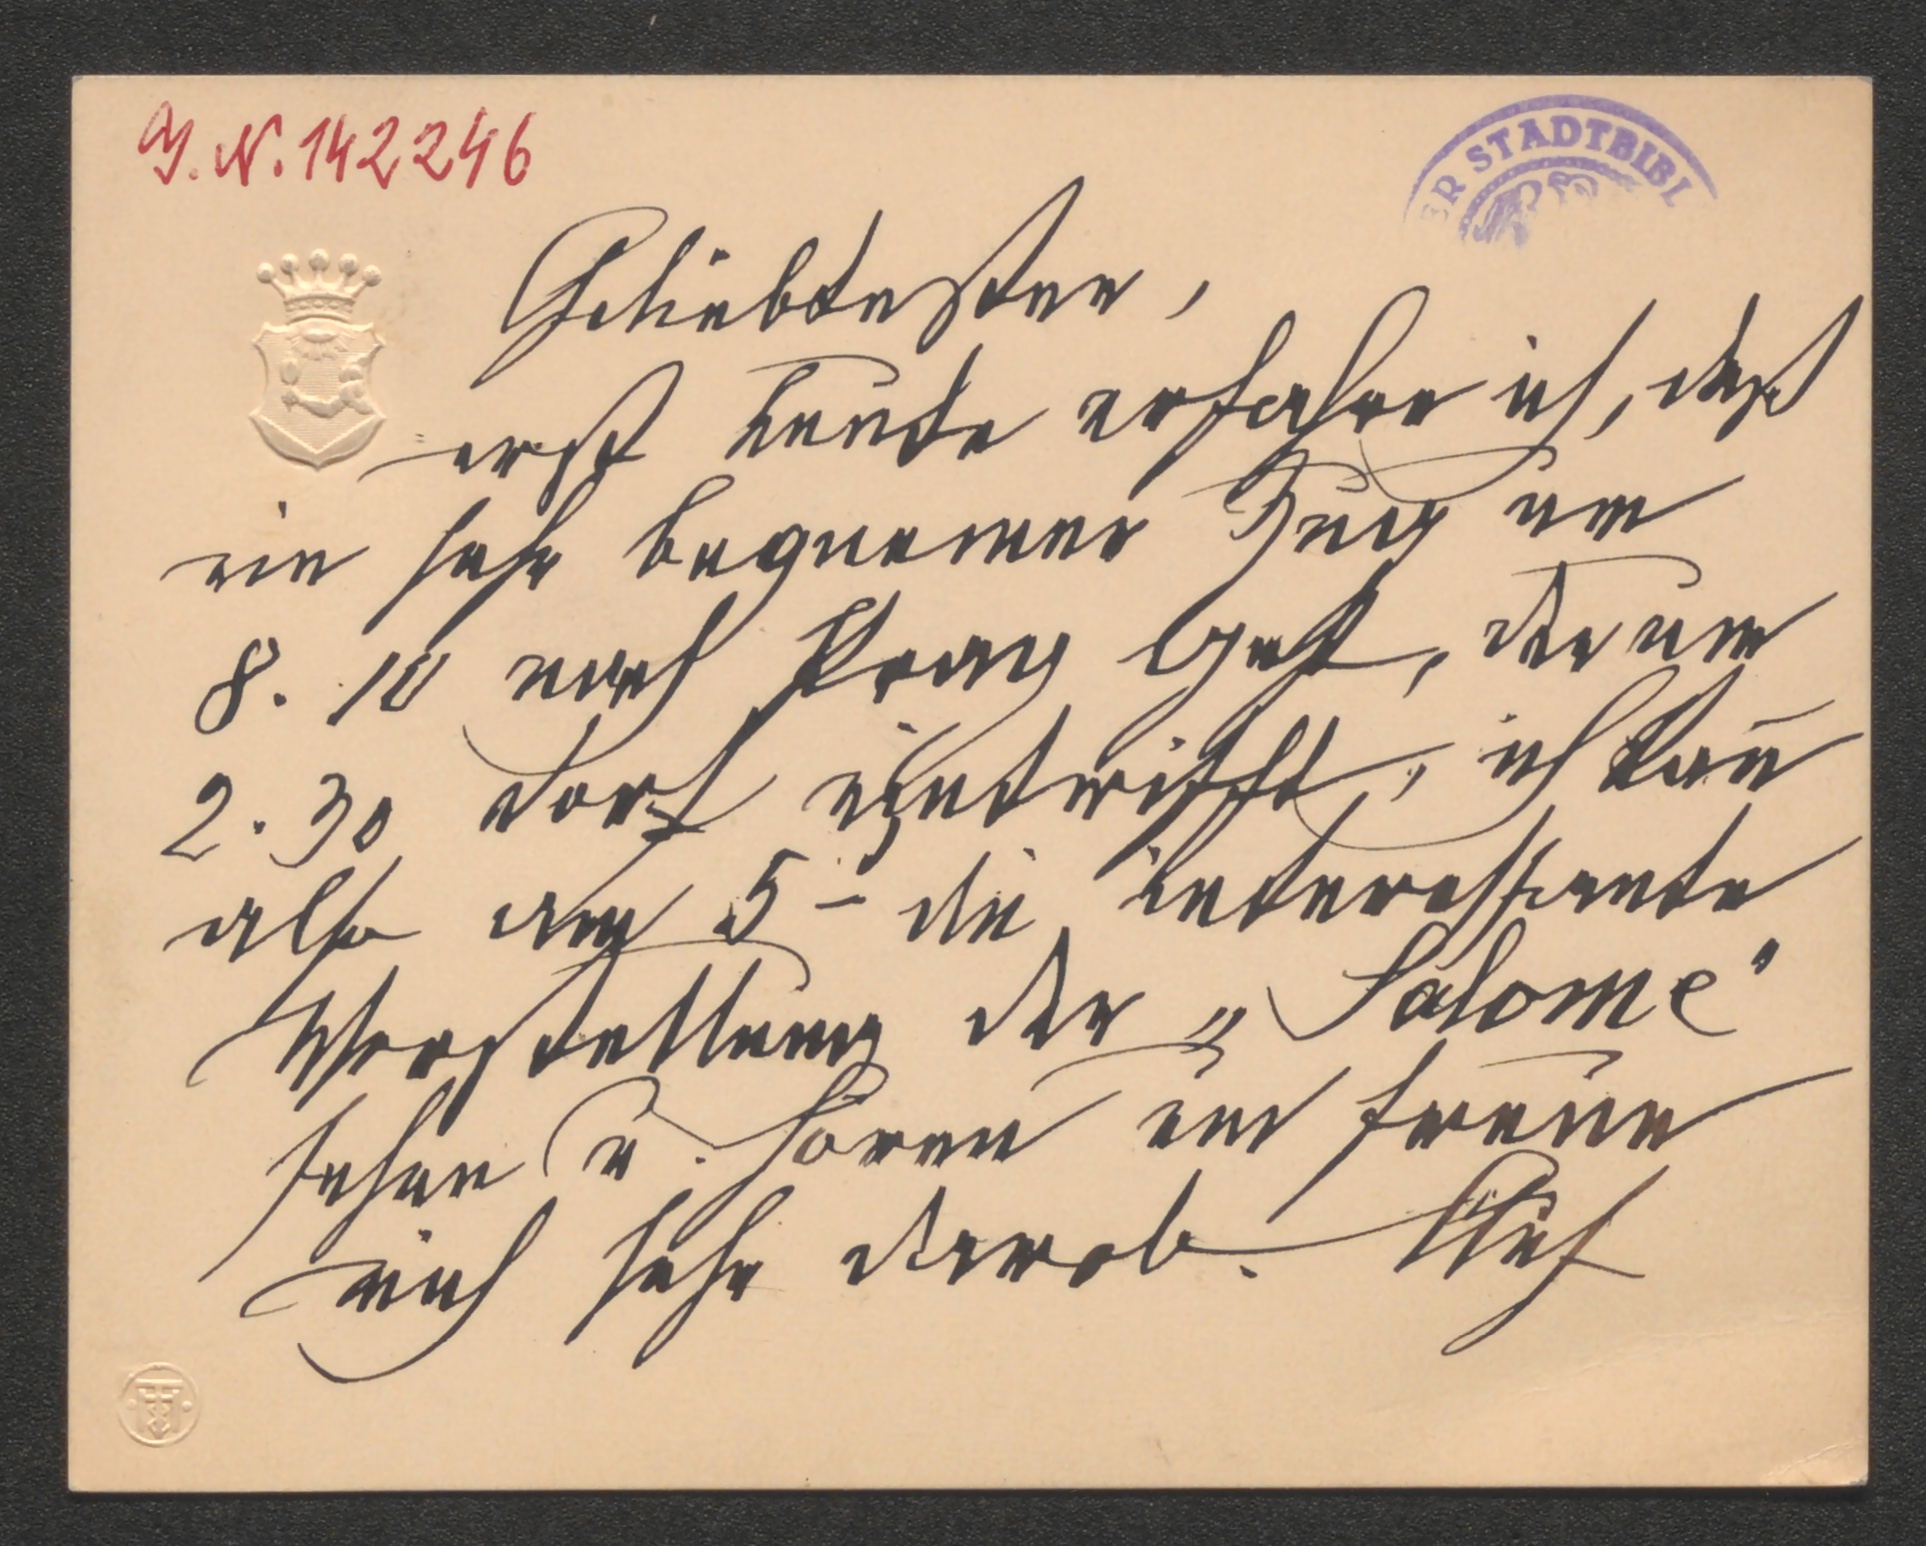 J. N. 142246
ER STADTBIBL
Geliebtester,
erst heute erfahre ich, daß
ein sehr bequemer Zug um
8. 10 nach Prag geht, der um
2. 30 dort eintrifft, ich kan̄
also am 5- die interessante
Vorstellung der „Salome"
sehen u. hören und freue
mich sehr darob. Auf